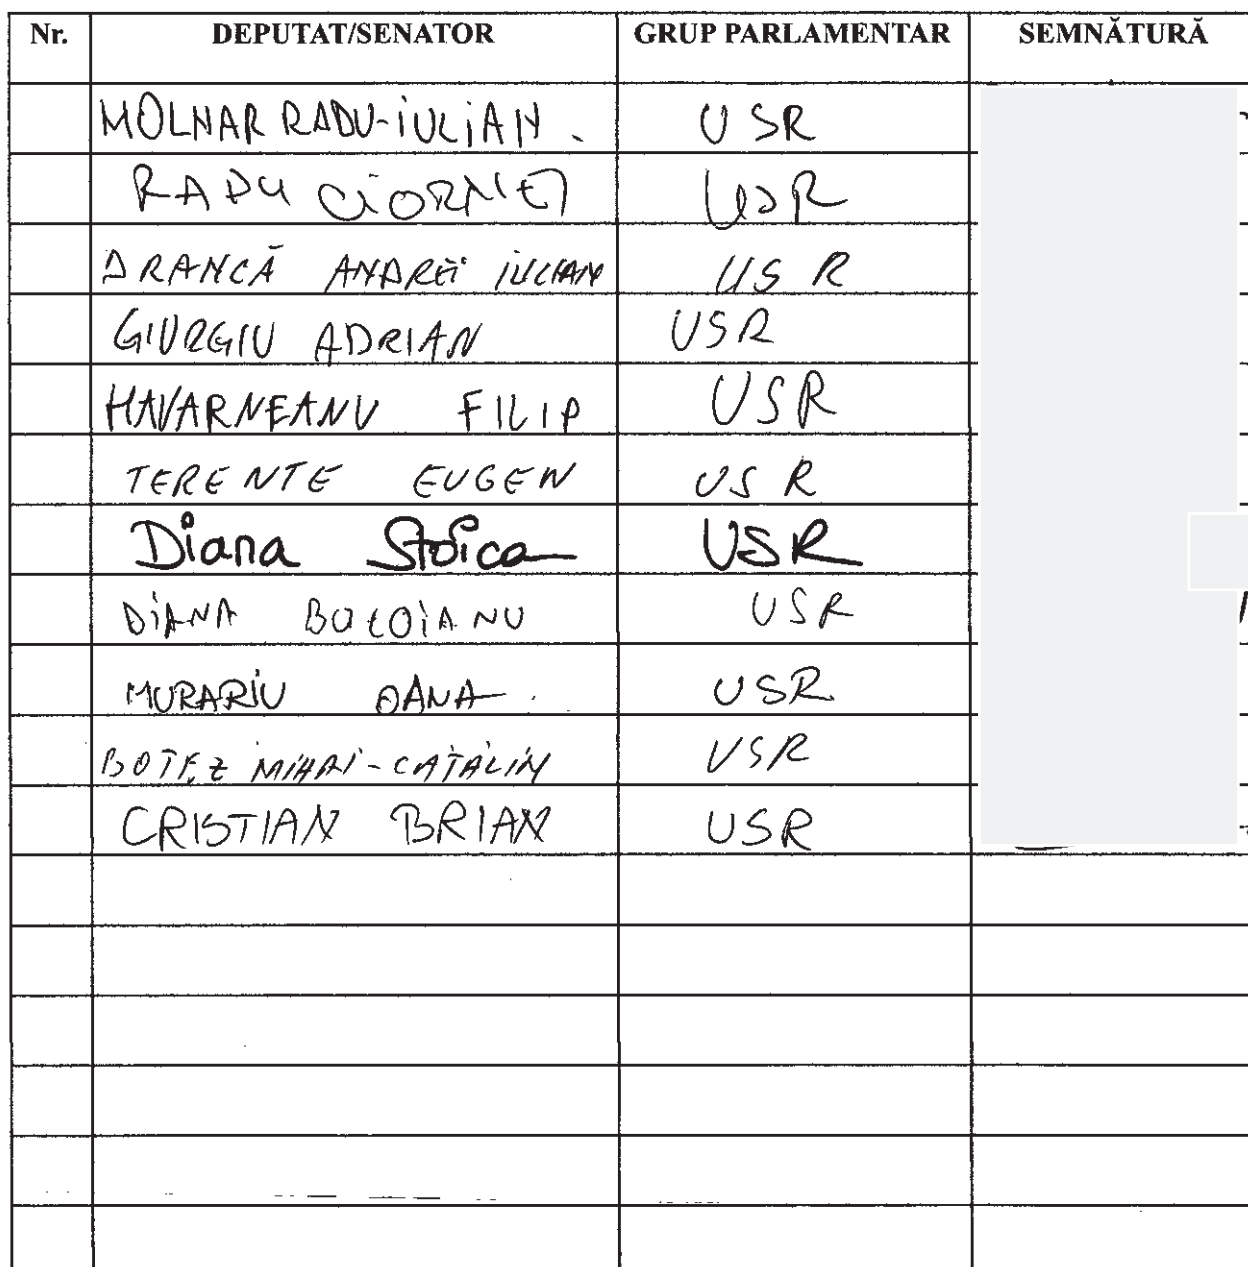 Nr. DEPUTAT/SENATOR GRUP PARLAMENTAR SEMNĂTURĂ
MOLNAR RADU-IULIAN. USR
RADU CIORNEI USR
DRANCĂ ANDREI IULIAN USR
GIURGIU ADRIAN USR
HAVARNEANU FILIP USR
TERENTE EUGEN USR
Diana Stoica USR
DIANA BUZOIANU USR
MURARIU OANA USR
BOTEZ MIHAI-CĂTĂLIN USR
CRISTIAN BRIAN USR